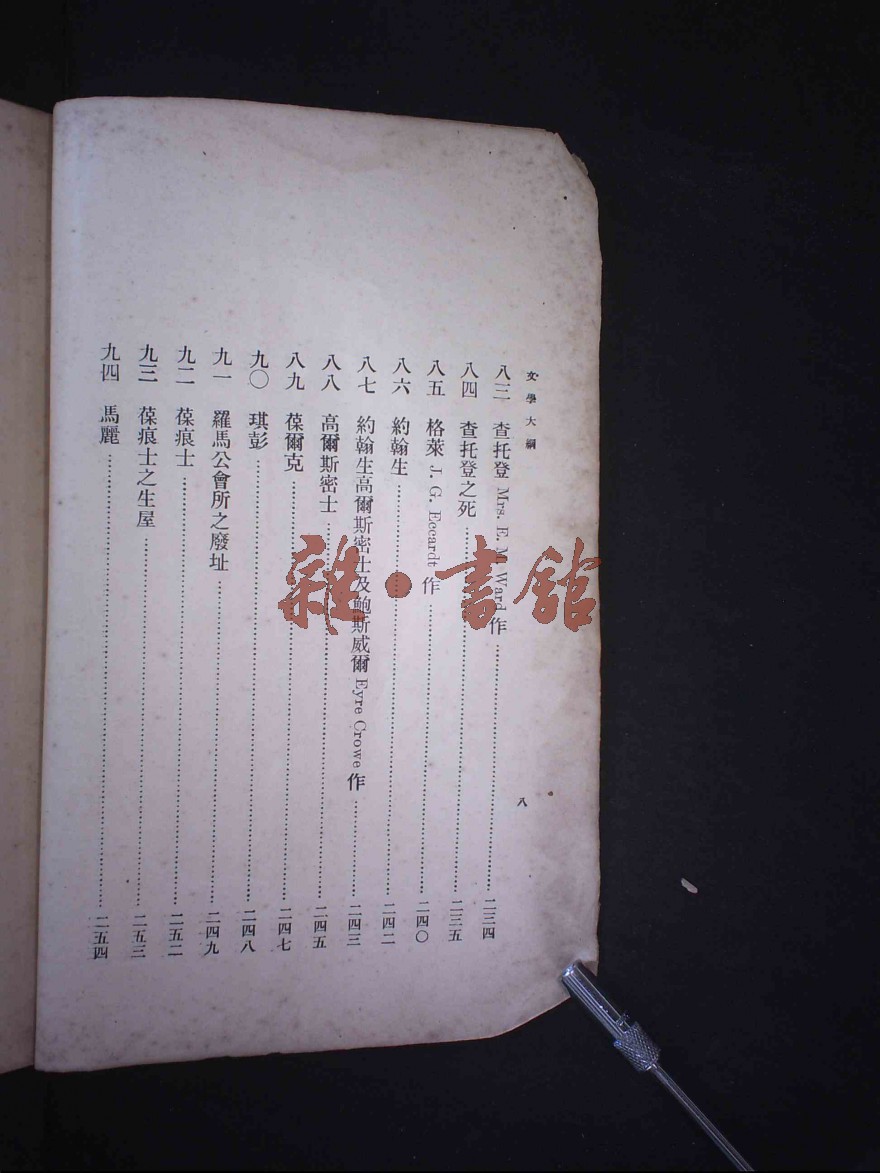 文學大綱
八
八三 查托登 Mrs. E. M. Ward 作 二三四
八四 查托登之死 二三五
八五 格萊 J. G. Eccardt 作 二四〇
八六 約翰生 二四二
八七 約翰生高爾斯密士及鮑斯威爾 Eyre Crowe 作 二四三
八八 高爾斯密士 二四五
八九 葆爾克 二四七
九〇 琪彭 二四八
九一 羅馬公會所之廢址 二四九
九二 葆痕士 二五二
九三 葆痕士之生屋 二五三
九四 馬麗 二五四
雜·書館